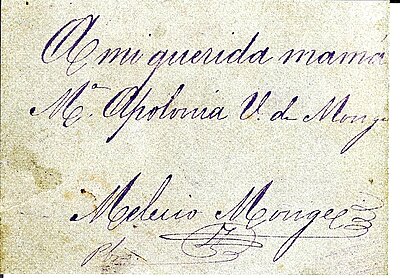 A mi querida mamá
Mª Apolonia V. de Monge
Melecio Monge
Pbro